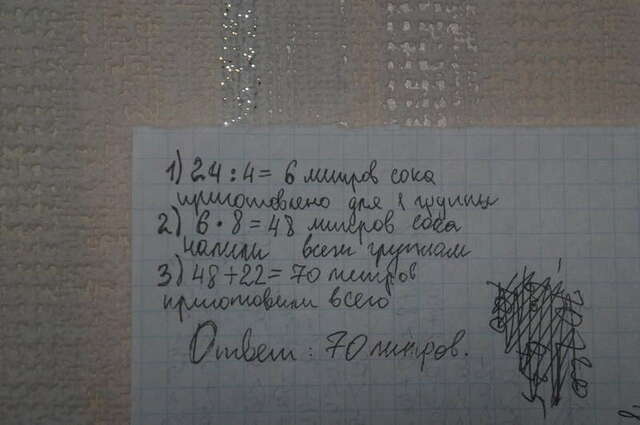 1) 24 : 4 = 6 литров сока
приготовлено для 1 группы
2) 6 • 8 = 48 литров сока
налили всем группам
3) 48 + 22 = 70 литров
приготовили всего
Ответ : 70 литров.